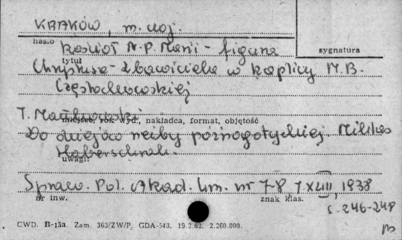 KRAKÓW, m. woj.
hasło
kościół N.P. Marii - figura
sygnatura
tytuł
Chrystusa - Zbawiciela w kaplicy M.B.
Częstochowskiej
T. Mańkowski
miejsce, rok wyd., nakładca, format, objętość
Do dziejów rzeźby późnogotyckiej. Mikołaj
Haberschrak.
uwagi
Spraw. Pol. Akad. Um. nr 7-8 T. XLIII, 1938
nr inw.
znak klas.
s. 246-248
CWD. B-15a. Zam. 363/ZW/P, GDA-543. 19.2.62. 2.260.000.